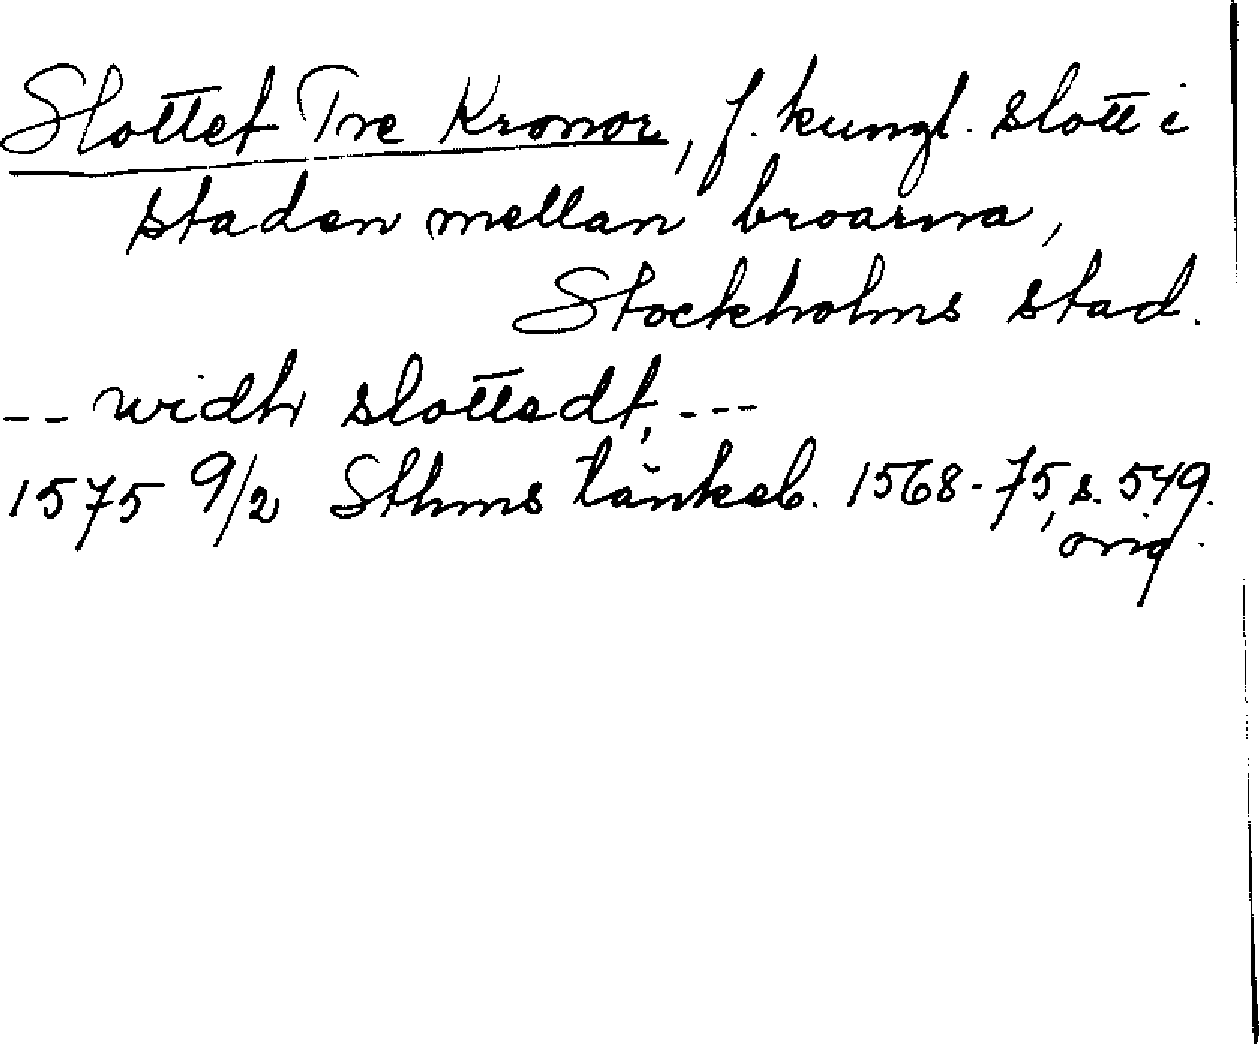 Slottet Tre Kronor, f. kungl. slott i
staden mellan broarna,
Stockholms stad.
-- widh slottedt, ---
1575 9/2 Sthms tänkeb. 1568-75, s. 549.
orig.